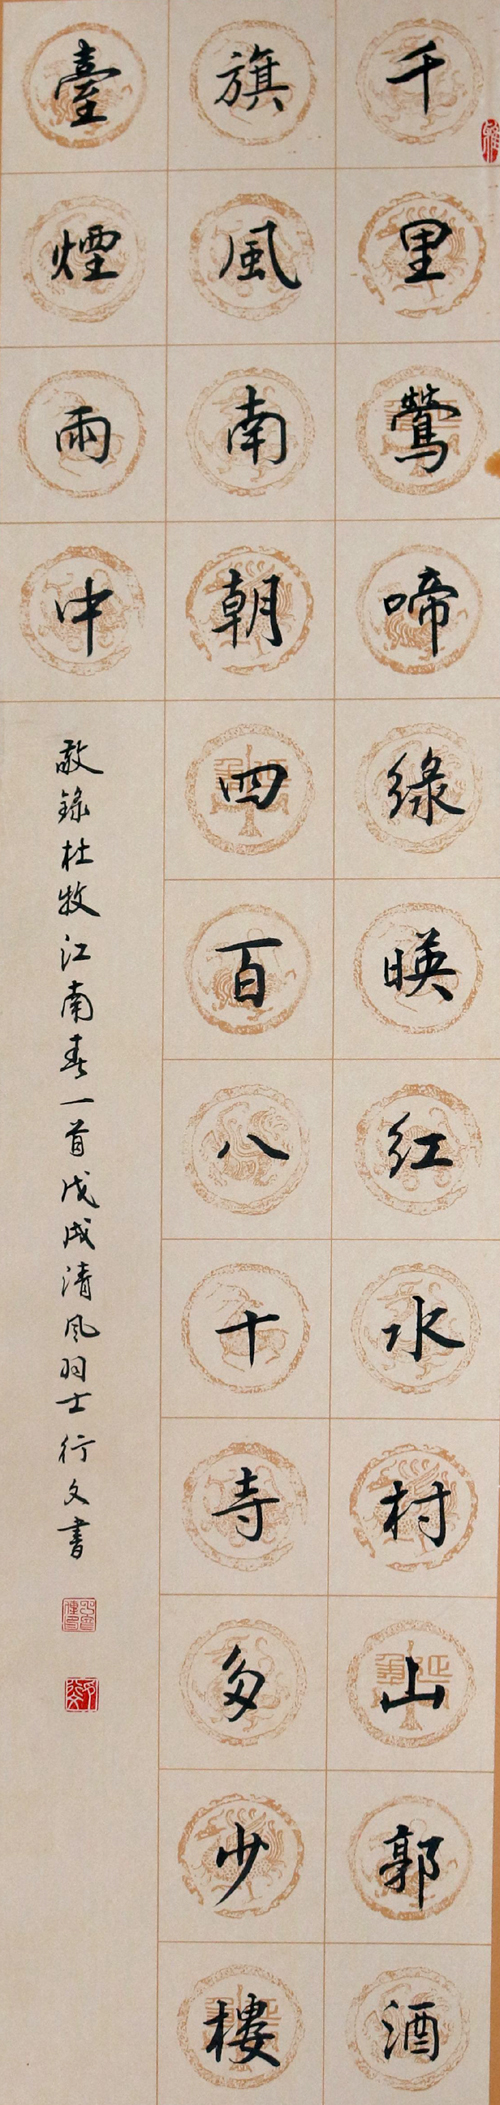 千里鶯啼綠暎紅水村山郭酒
旗風南朝四百八十寺多少樓
臺煙雨中
敬錄杜牧江南春一首戊戌清風羽士行文書